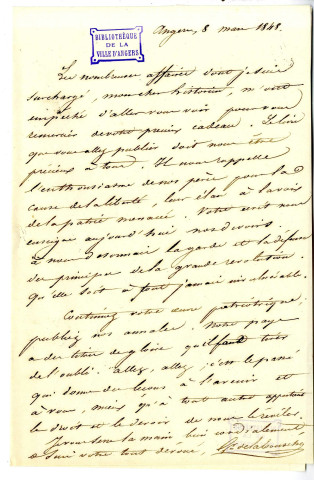 Angers, 8 mars 1848.
BIBLIOTHÈQUE
DE LA
VILLE D'ANGERS
Les nombreuses affaires dont je suis
surchargé, mon cher historien, m'ont
empêché d'aller vous voir pour vous
remercier de votre précieux cadeau. Le livre
que vous allez publier doit nous être
précieux à tous. Il nous rappelle
l'enthousiasme de nos pères pour la
cause de la liberté, leur élan à la voix
de la patrie menacée. Votre écrit nous
enseigne aujourd'hui nos devoirs.
à nous désormais la garde et la défense
des principes de la grande révolution.
Qu'elle soit à tout jamais inviolable.
Continuez votre œuvre patriotique;
publiez nos annales. Notre pays
a des titres de gloire qu'il faut tirer
de l'oubli. Allez, allez; c'est le passé
qui donne des leçons à l'avenir et
à vous, mieux qu'à tout autre appartient
le droit et le devoir de nous les révéler.
Je vous serre la main bien cordialement,
& suis votre tout dévoué,